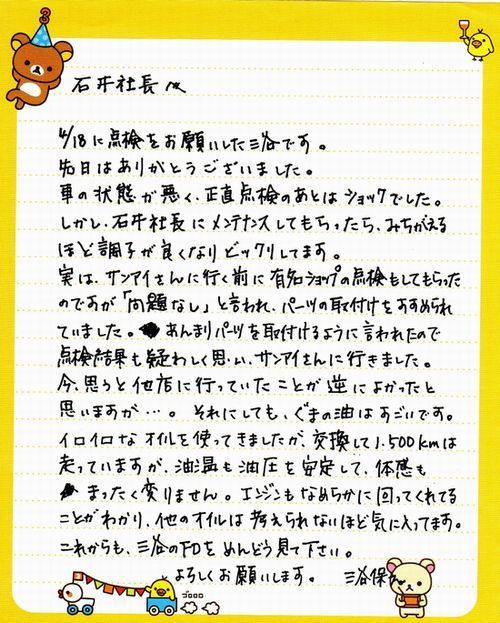 3
石井社長へ
4/18に点検をお願いした三谷です。
先日はありがとうございました。
車の状態が悪く、正直点検のあとはショックでした。
しかし、石井社長にメンテナンスしてもらったら、みちがえる
ほど調子が良くなりビックリしてます。
実は、サンアイさんに行く前に有名ショップの点検もしてもらった
のですが「問題なし」と言われ、パーツの取付けをすすめられ
ていました。あんまりパーツを取付けるように言われたので
点検結果も疑わしく思い、サンアイさんに行きました。
今、思うと他店に行っていたことが逆によかったと
思いますが…。それにしても、ぐまの油はすごいです。
イロイロなオイルを使ってきましたが、交換して1.500kmは
走っていますが、油温も油圧も安定して、体感も
まったく変りません。エンジンもなめらかに回ってくれてる
ことがわかり、他のオイルは考えられないほど気に入ってます。
これからも、三谷のFDをめんどう見て下さい。
よろしくお願いします。 三谷保
ゴロロロ